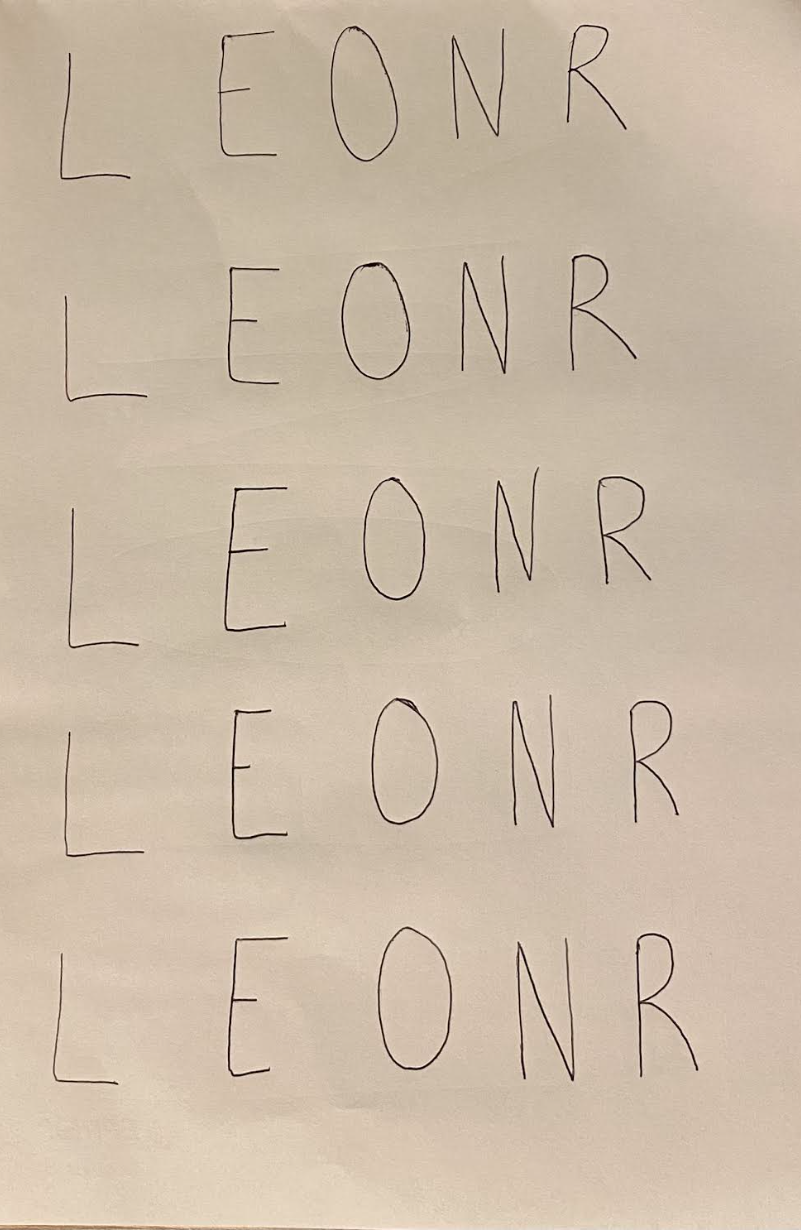 L E O N R
L E O N R
L E O N R
L E O N R
L E O N R